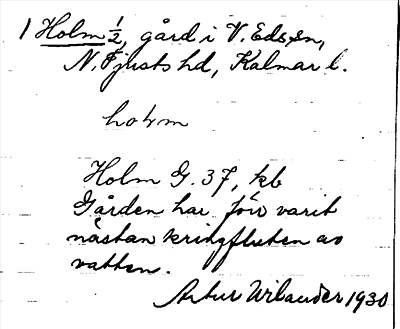 1 Holm ½, gård i V. Eds sn,
N. Tjusts hd, Kalmar l.
holm
Holm G. 37, kb
Gården har förr varit
nästan kringfluten av
vatten.
Artur Wilander 1930